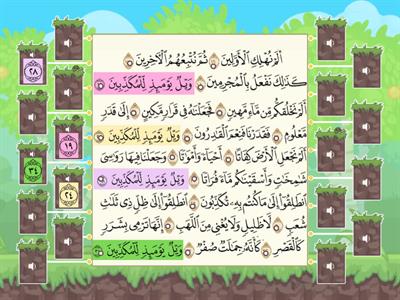 أَلَمْ نُهْلِكِ ٱلْأَوَّلِينَ ثُمَّ نُتْبِعُهُمُ ٱلْآخِرِينَ
كَذَٰلِكَ نَفْعَلُ بِٱلْمُجْرِمِينَ وَيْلٌ يَوْمَئِذٍ لِّلْمُكَذِّبِينَ
أَلَمْ نَخْلُقكُّم مِّن مَّآءٍ مَّهِينٍ فَجَعَلْنَٰهُ فِى قَرَارٍ مَّكِينٍ إِلَىٰ قَدَرٍ
مَّعْلُومٍ فَقَدَرْنَا فَنِعْمَ ٱلْقَٰدِرُونَ وَيْلٌ يَوْمَئِذٍ لِّلْمُكَذِّبِينَ
أَلَمْ نَجْعَلِ ٱلْأَرْضَ كِفَاتًا أَحْيَآءً وَأَمْوَٰتًا وَجَعَلْنَا فِيهَا رَوَٰسِىَ
شَٰمِخَٰتٍ وَأَسْقَيْنَٰكُم مَّآءً فُرَاتًا وَيْلٌ يَوْمَئِذٍ لِّلْمُكَذِّبِينَ
ٱنطَلِقُوٓا۟ إِلَىٰ مَا كُنتُم بِهِۦ تُكَذِّبُونَ ٱنطَلِقُوٓا۟ إِلَىٰ ظِلٍّ ذِى ثَلَٰثِ
شُعَبٍ لَّا ظَلِيلٍ وَلَا يُغْنِى مِنَ ٱللَّهَبِ إِنَّهَا تَرْمِى بِشَرَرٍ
كَٱلْقَصْرِ كَأَنَّهُۥ جِمَٰلَتٌ صُفْرٌ وَيْلٌ يَوْمَئِذٍ لِّلْمُكَذِّبِينَ
٢٨
١٩
٣٤
٢٤